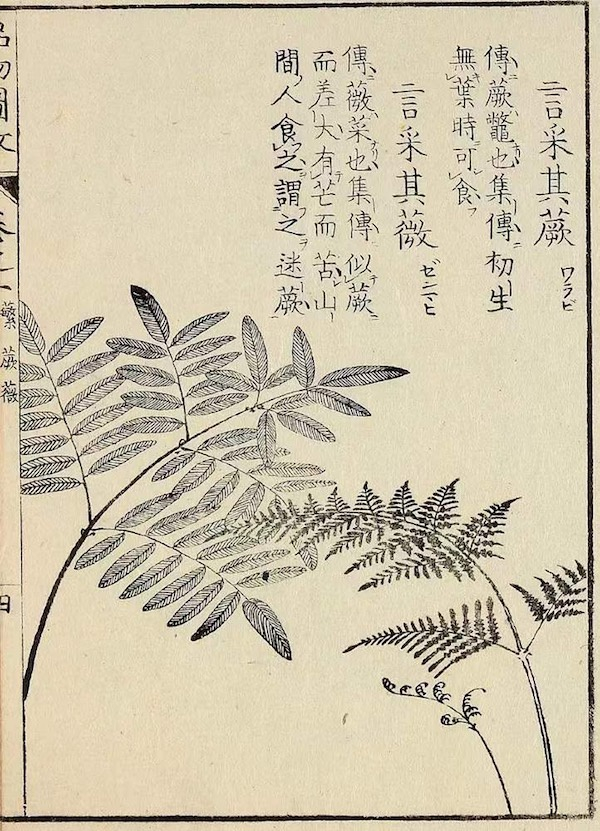 言采其蕨 ワラビ
傳蕨鼈也集傳初生
無葉時可食
言采其薇 ゼンマヒ
傳薇菜也集傳似蕨
而差大有芒而苦山
間人食之謂之迷蕨
蘩 蕨 薇